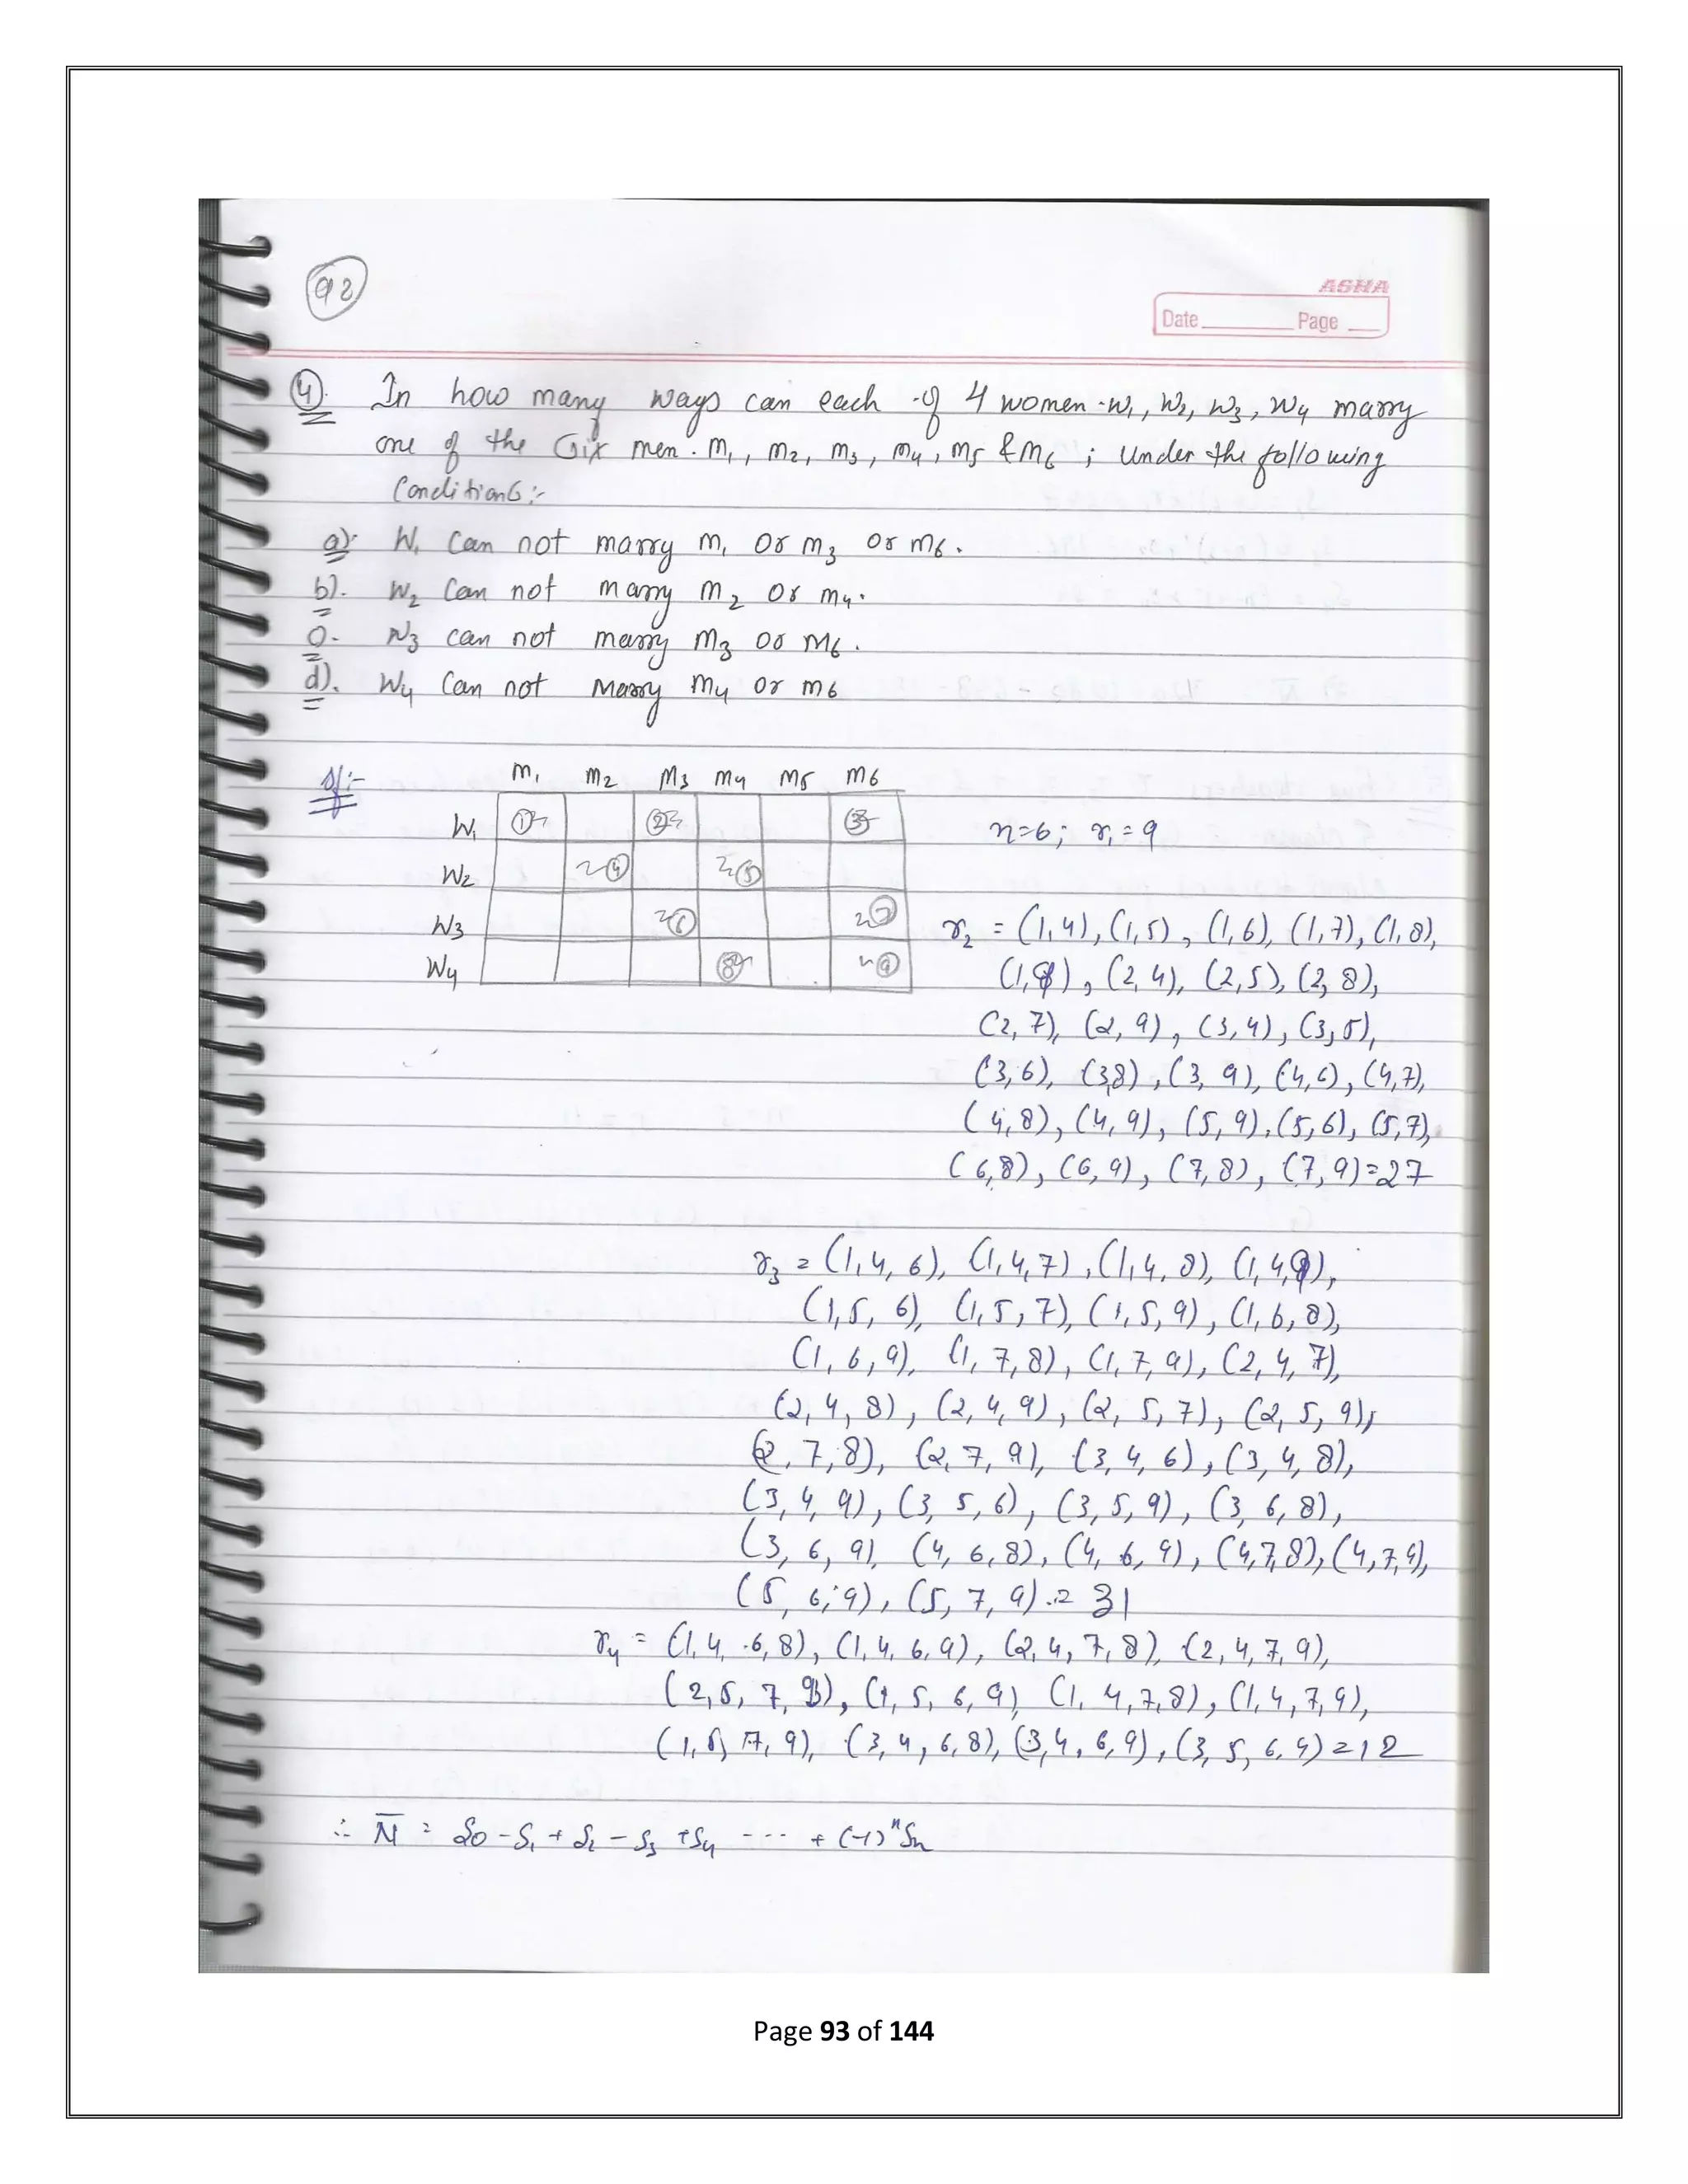 92
ASHA
Date Page
4). In how many ways can each of 4 women w1, w2, w3, w4 marry
one of the six men. m1, m2, m3, m4, m5 & m6 ; under the following
Conditions:-
a). W1 can not marry m1 or m3 or m6.
b). W2 can not marry m2 or m4.
c). W3 can not marry m3 or m6.
d). W4 can not marry m4 or m6
Sol:-
m1 m2 m3 m4 m5 m6
W1 1 2 3
W2 4 5
W3 6 7
W4 8 9
n=6; r1 = 9
r2 = (1,4), (1,5), (1,6), (1,7), (1,8),
(1,9), (2,4), (2,5), (2,8),
(2,7), (2,9), (3,4), (3,5),
(3,6), (3,8), (3,9), (4,6), (4,7),
(4,8), (4,9), (5,9), (5,6), (5,7),
(6,8), (6,9), (7,8), (7,9) = 27
r3 = (1,4,6), (1,4,7), (1,4,8), (1,4,9),
(1,5,6), (1,5,7), (1,5,9), (1,6,8),
(1,6,9), (1,7,8), (1,7,9), (2,4,7),
(2,4,8), (2,4,9), (2,5,7), (2,5,9),
(2,7,8), (2,7,9), (3,4,6), (3,4,8),
(3,4,9), (3,5,6), (3,5,9), (3,6,8),
(3,6,9), (4,6,8), (4,6,9), (4,7,8), (4,7,9),
(5,6,9), (5,7,9) = 31
r4 = (1,4,6,8), (1,4,6,9), (2,4,7,8), (2,4,7,9),
(2,5,7,9), (1,5,6,9), (1,4,7,8), (1,4,7,9),
(1,5,7,9), (3,4,6,8), (3,4,6,9), (3,5,6,9) = 12
∴ N̄ = S0 - S1 + S2 - S3 + S4 --- + (-1)^n Sn
Page 93 of 144